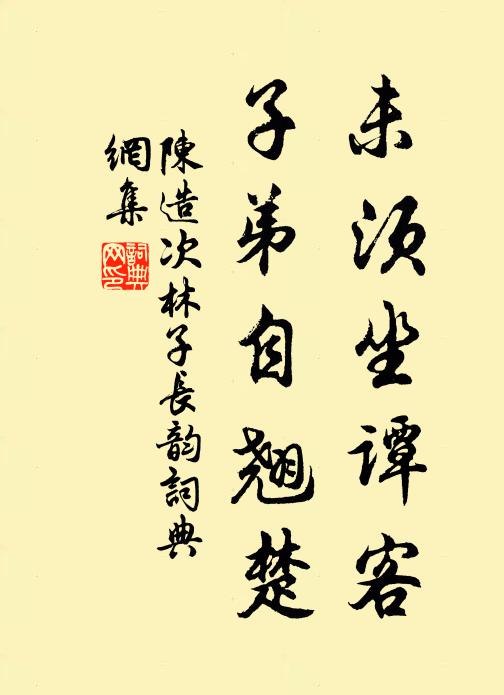 未須坐譚客
子弟自翹楚
陳造次林子長韵詞典
網集
詞典
网印